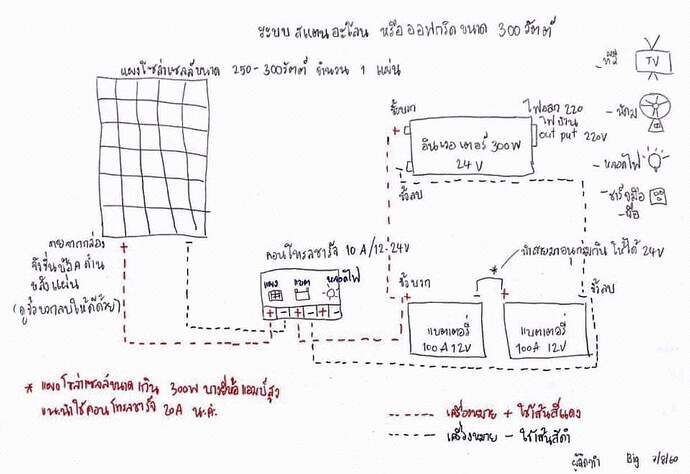 ระบบ สแตนอะโลน หรือ ออฟกริด ขนาด 300 วัตต์
แผงโซล่าเซลล์ขนาด 250-300วัตต์ จำนวน 1 แผ่น
ทีวี
TV
พัดลม
หลอดไฟ
ชาร์จมือ
ถือ
ขั้วบวก
+
อินเวอเตอร์ 300W
24V
ไฟออก 220
ไฟบ้าน
out put 220V
-
ขั้วลบ
+
-
สายจากกล่อง
จังชั่นบ๊อค ด้าน
หลังแผ่น
(ดูขั้วบวกลบให้ดีด้วย)
คอนโทรลชาร์จ 10A/12-24V
แผง
แบต
หลอดไฟ
+ - + - + -
*
นำสายมาอนุกรมกัน ให้ได้ 24V
ขั้วบวก
+
-
+
-
ขั้วลบ
แบตเตอรี่
100A 12V
แบตเตอรี่
100A 12V
* แผงโซล่าเซลล์ขนาดเกิน 300W บางยี่ห้อแอมป์สูง
แนะนำใช้คอนโทรลชาร์จ 20A น.ค่ะ
เครื่องหมาย + ใช้เส้นสีแดง
เครื่องหมาย - ใช้เส้นสีดำ
Big